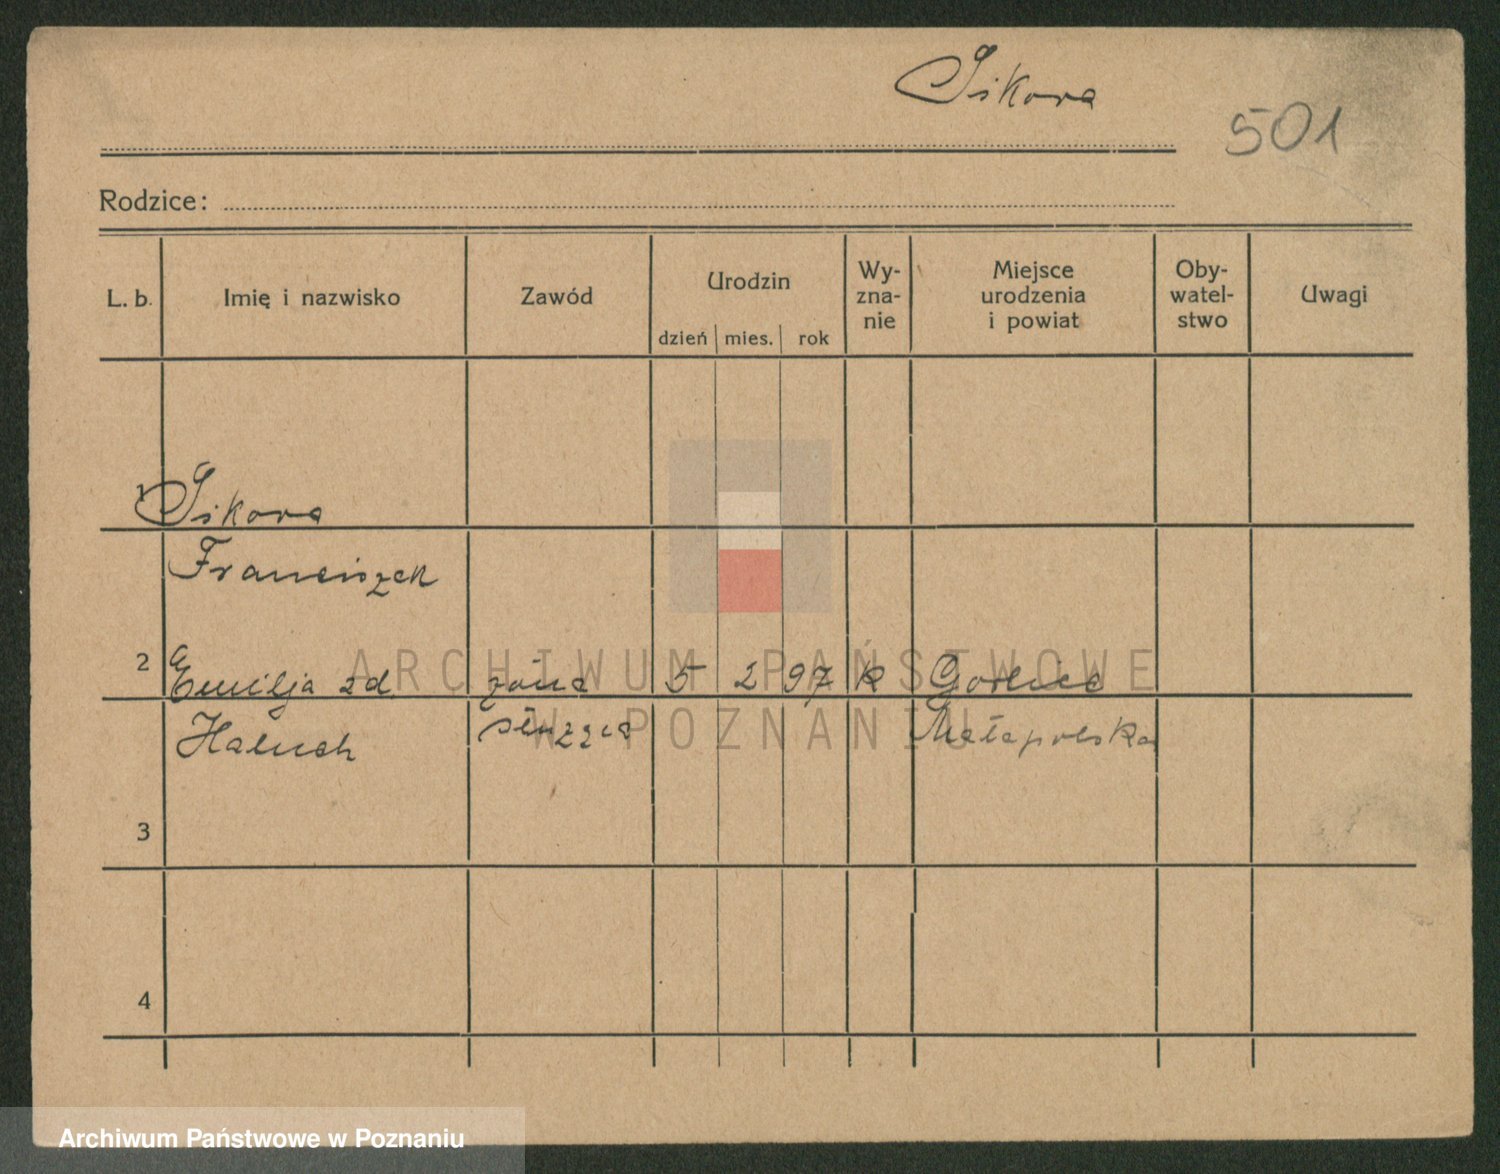 Sikora
501
Rodzice:
L. b. Imię i nazwisko Zawód Urodzin dzień mies. rok Wy-zna-nie Miejsce urodzenia i powiat Oby-watel-stwo Uwagi
1 Sikora
Franciszek
2 Emilja zd żona 5 2 97 k Gorlice
Haluch służąca Małopolska
3
4
ARCHIWUM PAŃSTWOWE
W POZNANIU
Archiwum Państwowe w Poznaniu